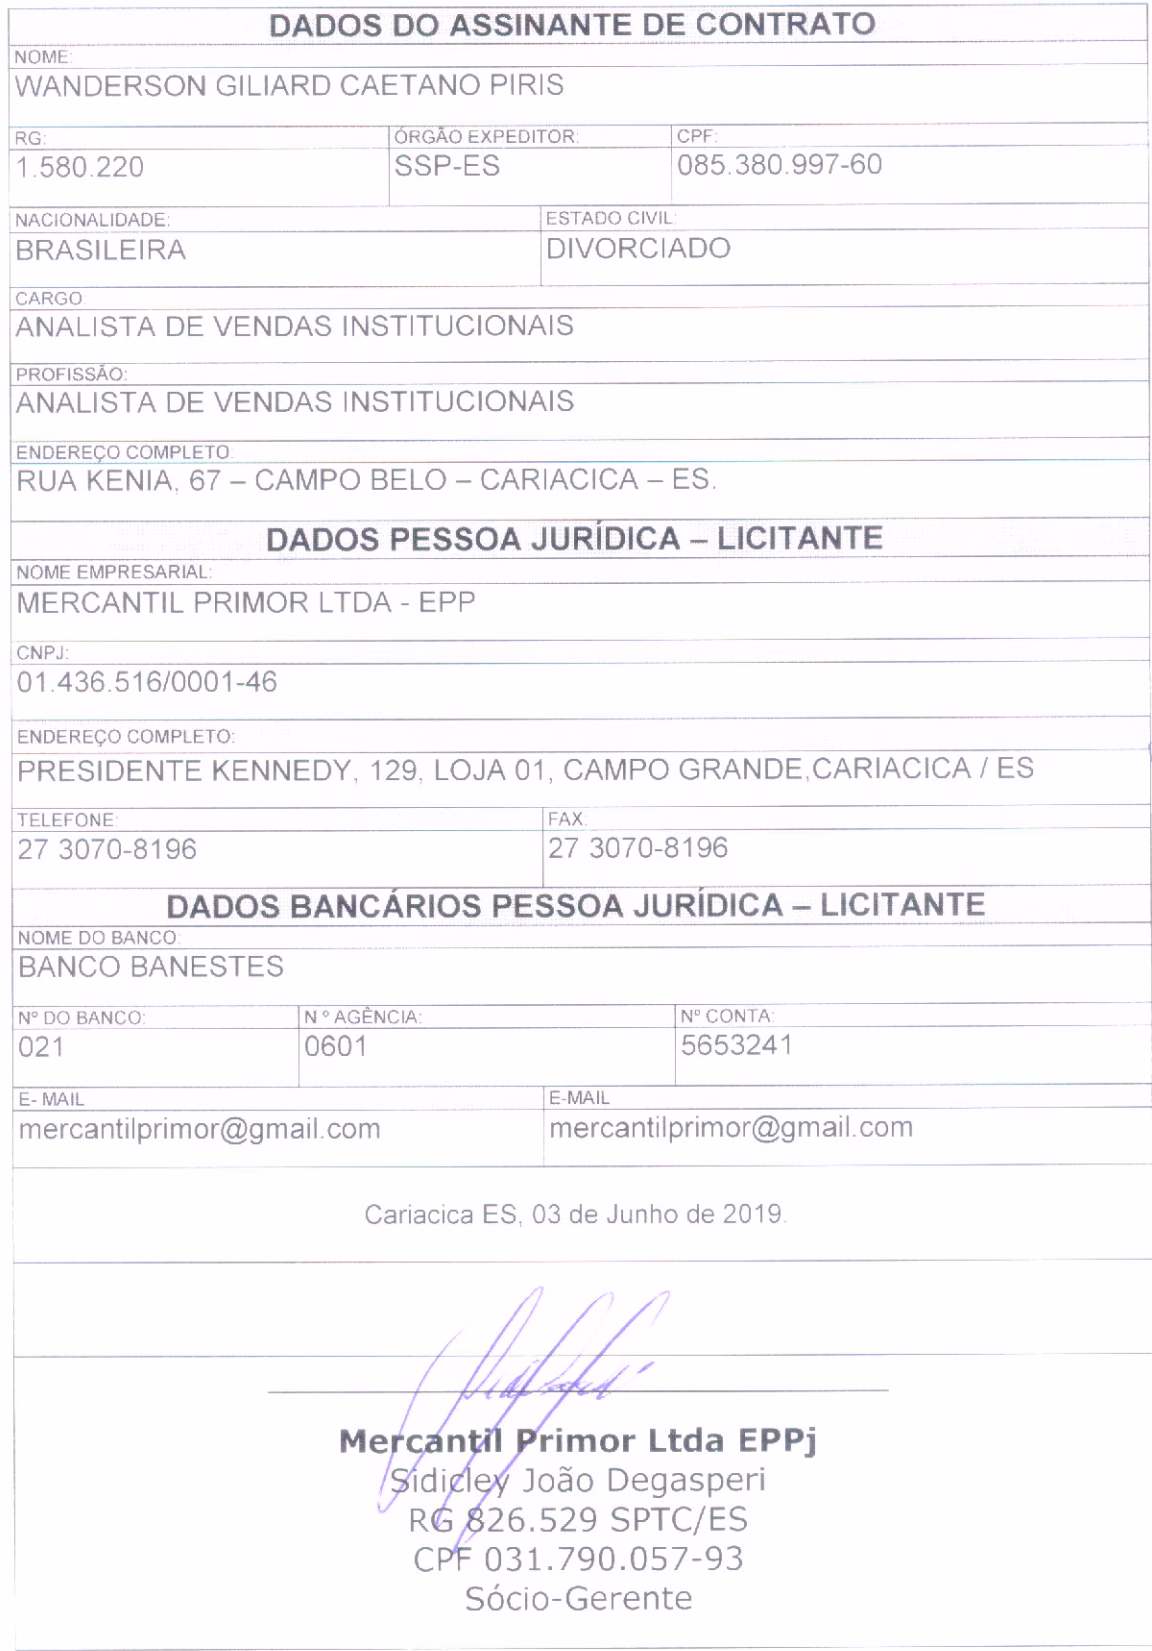 DADOS DO ASSINANTE DE CONTRATO
NOME:
WANDERSON GILIARD CAETANO PIRIS
RG: ÓRGÃO EXPEDITOR: CPF:
1.580.220 SSP-ES 085.380.997-60
NACIONALIDADE: ESTADO CIVIL:
BRASILEIRA DIVORCIADO
CARGO:
ANALISTA DE VENDAS INSTITUCIONAIS
PROFISSÃO:
ANALISTA DE VENDAS INSTITUCIONAIS
ENDEREÇO COMPLETO:
RUA KENIA, 67 – CAMPO BELO – CARIACICA – ES.
DADOS PESSOA JURÍDICA – LICITANTE
NOME EMPRESARIAL:
MERCANTIL PRIMOR LTDA - EPP
CNPJ:
01.436.516/0001-46
ENDEREÇO COMPLETO:
PRESIDENTE KENNEDY, 129, LOJA 01, CAMPO GRANDE,CARIACICA / ES
TELEFONE: FAX:
27 3070-8196 27 3070-8196
DADOS BANCÁRIOS PESSOA JURÍDICA – LICITANTE
NOME DO BANCO:
BANCO BANESTES
Nº DO BANCO: N º AGÊNCIA: Nº CONTA:
021 0601 5653241
E- MAIL E-MAIL
mercantilprimor@gmail.com mercantilprimor@gmail.com
Cariacica ES, 03 de Junho de 2019.
Mercantil Primor Ltda EPPj
Sidicley João Degasperi
RG 826.529 SPTC/ES
CPF 031.790.057-93
Sócio-Gerente